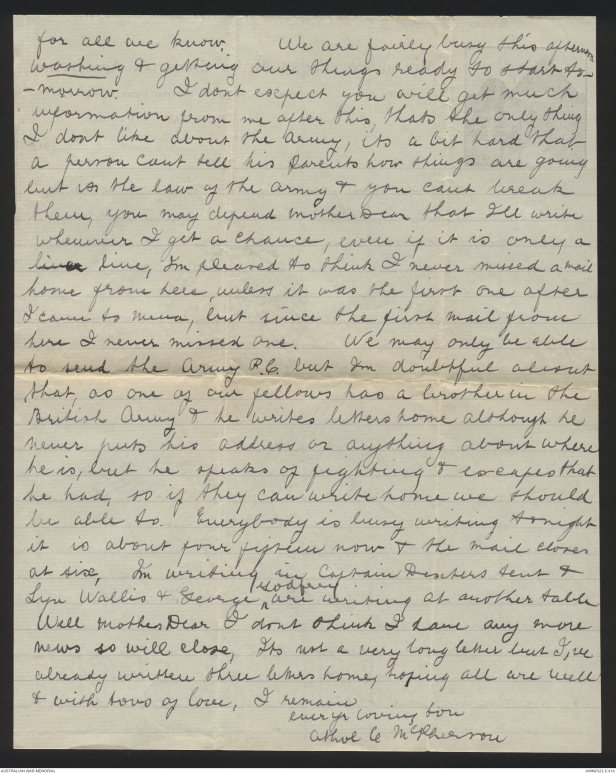 for all we know. We are fairly busy this afternoon
washing & getting our things ready to start to-
-morrow. I dont expect you will get much
information from me after this, thats the only thing
I dont like about the Army, its a bit hard that
a person cant tell his Parents how things are going
but its the law of the army & you cant break
them, you may depend Mother Dear that I'll write
whenever I get a chance, even if it is only a
line, Im pleased to think I never missed a mail
home from here, unless it was the first one after
I came to Mena, but since the first mail from
here I never missed one. We may only be able
to send the Army P.C. but Im doubtful about
that, as one of our fellows has a brother in the
British Army & he writes letters home although he
never puts his address or anything about where
he is, but he speaks of fighting & escapes that
he had, so if they can write home we should
be able to. Everybody is busy writing tonight
it is about four fifteen now & the mail closes
at six, Im writing in Captain Dexters tent &
Lyn Wallis & George are writing at another table
Well Mother Dear I dont think I have any more
news so will close, Its not a very long letter but I,ve
already written three letters home, hoping all are well
& with tons of love, I remain
ever yr loving Son
Athol C McPherson
AUSTRALIAN WAR MEMORIAL